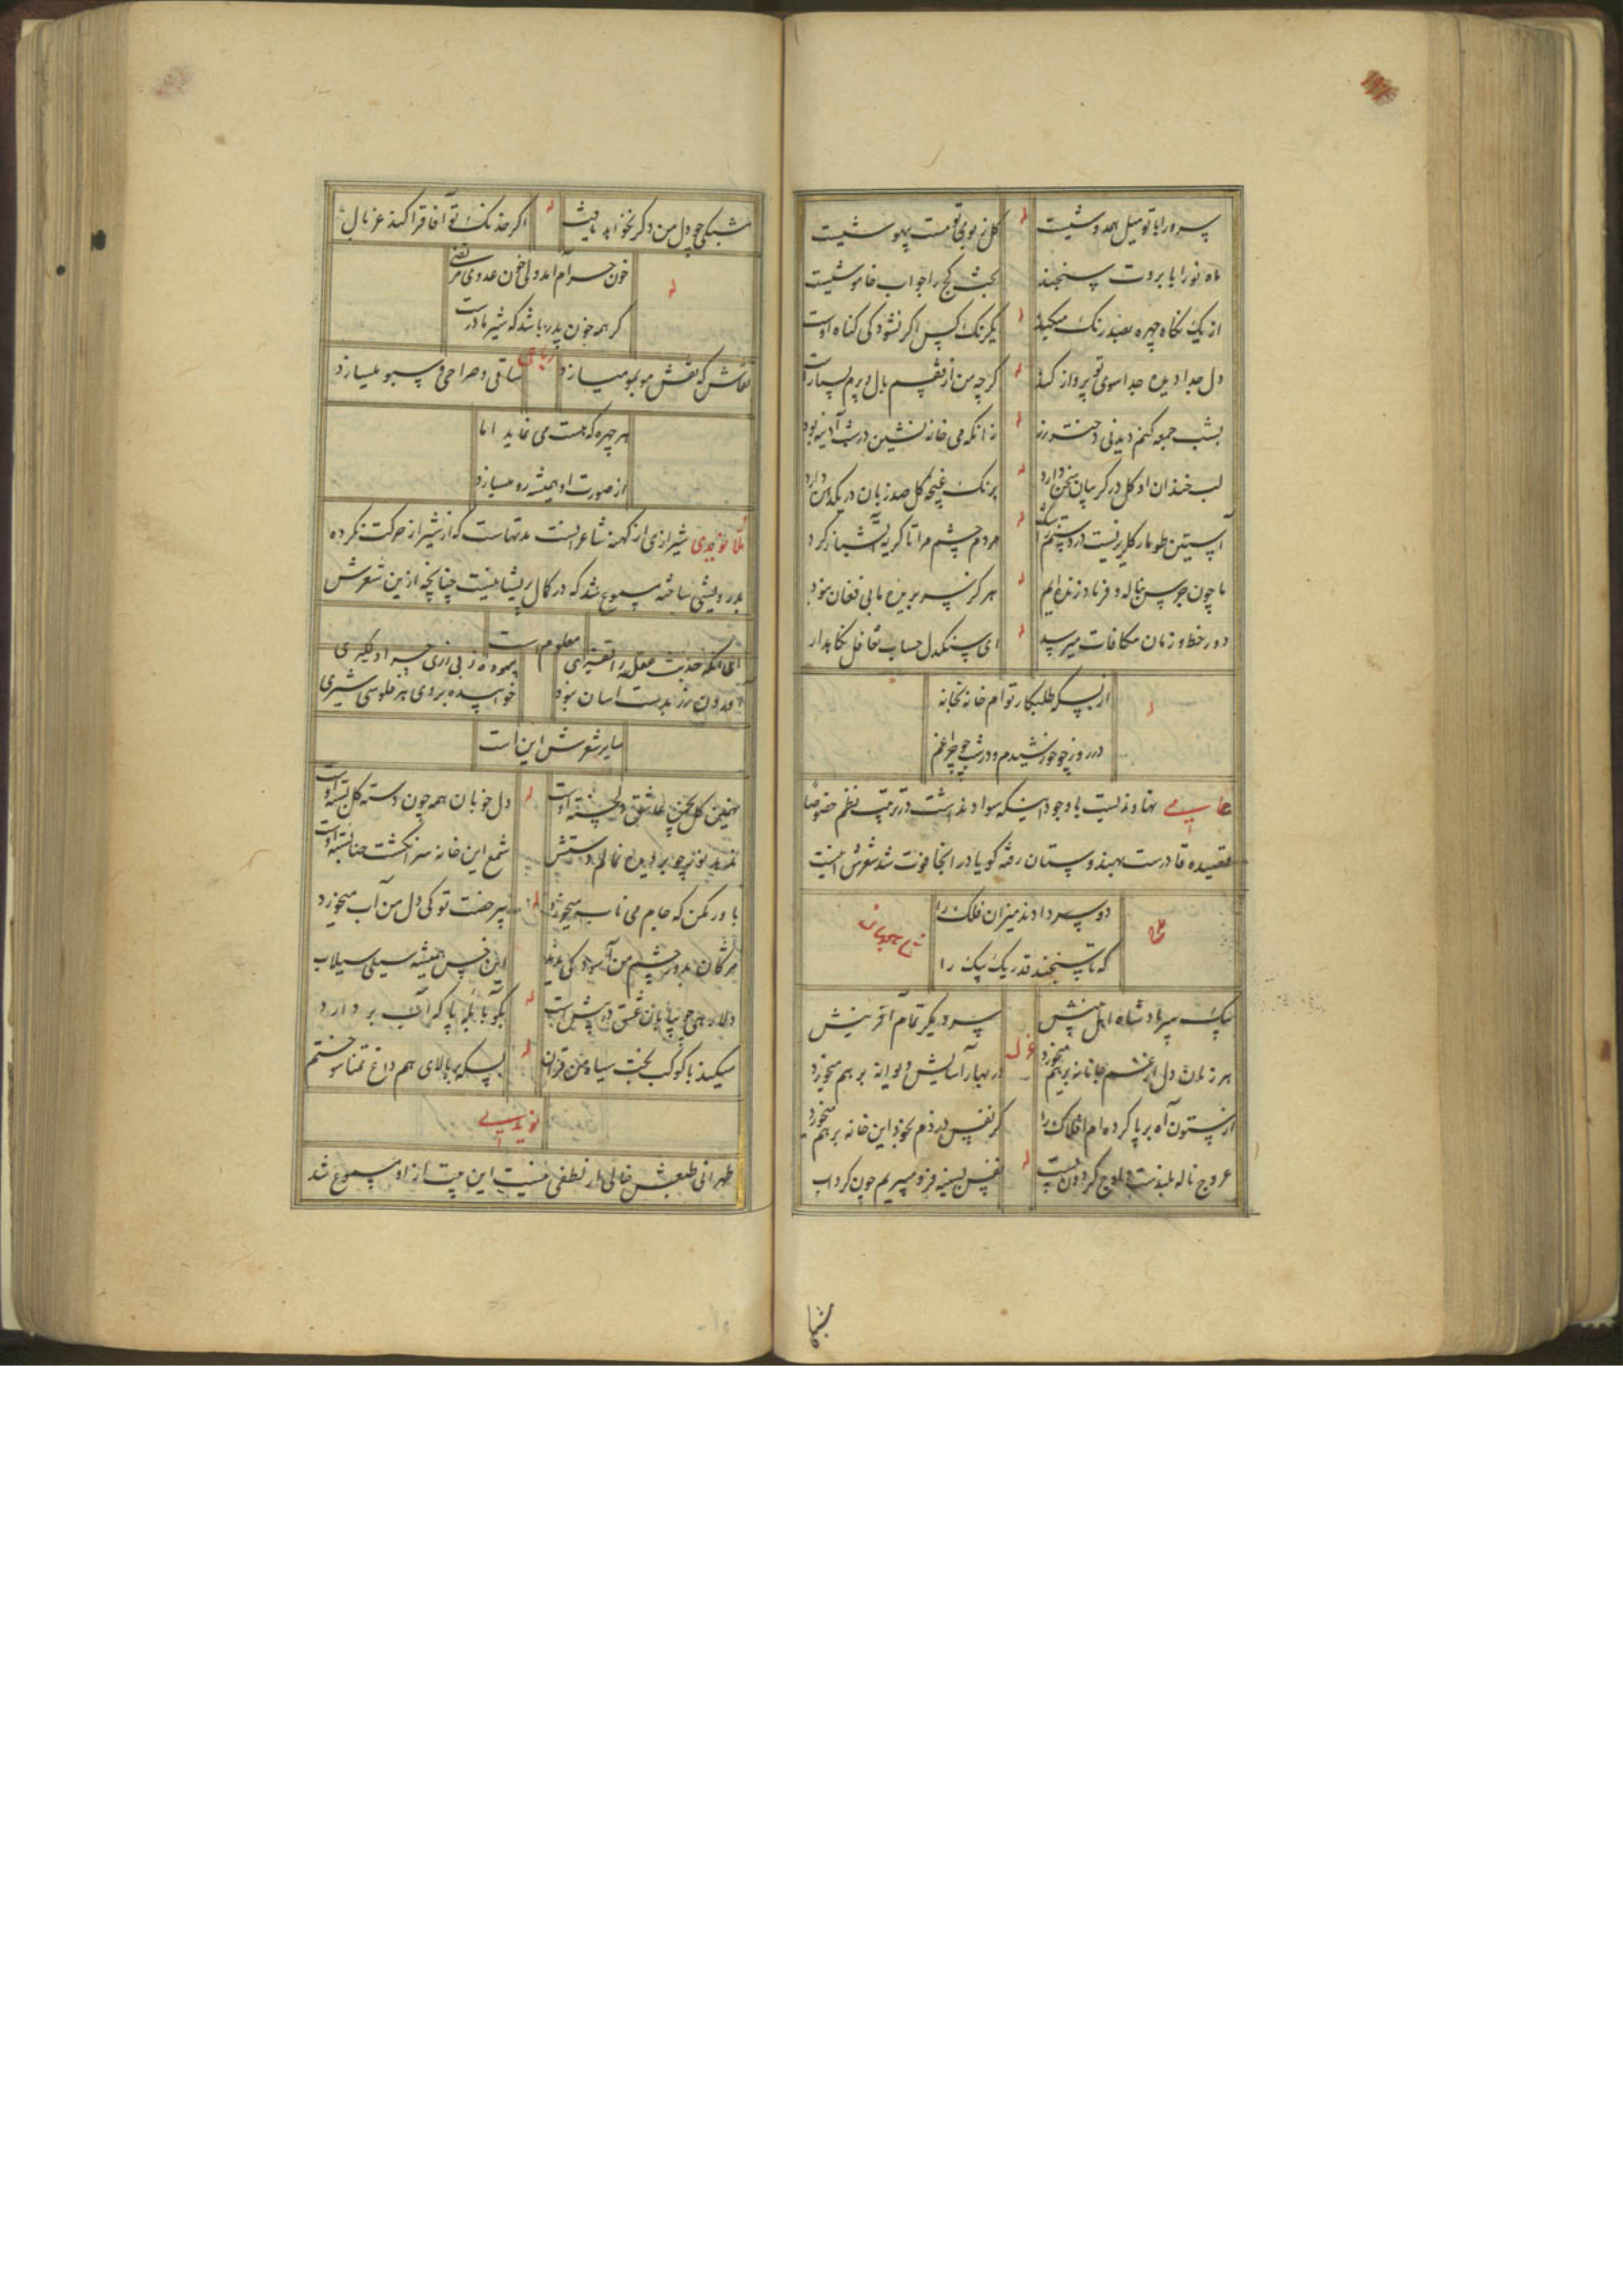 سرو را با تو میل همدوشیست
کل ز بوی تو مست بیهوشیست
ماه نو را با بروت سنجند
بحث کج را جواب خاموشیست
از یک نکاه چهره بصد رنک میکند
یکرنک کس اکر نشود کی کناه اوست
دل جدا دیده جدا سوی تو پرواز کند
کرچه من در قفسم بال و پرم بسیارست
بشب جمعه کنم دیدنی دختر رز
زانکه می خانه نشین در شب آدینه بود
لب خندان او کل در کریبان سخن دارد
برنک غنچه کل صد زبان در یک دهن دارد
آستین طومار کلریزیست در دستم
مردم چشم مرا تا کریه آتشباز کرد
ما چون جرس بناله و فریاد زنده ایم
هرکز نسر بریده ما بی فغان نبود
دور خط و زمان مکافات میرسد
ای سنکدل حساب تغافل نکاهدار
از بسکه طلبکار توام خانه بخانه
در روز چو خورشیدم و در شب چو چراغم
نهاوندیست با وجود اینکه سواد نداشت در ترتیب نظم خصوصا
قصیده قادرست بهندوستان رفته کویا در انجا فوت شد شعرش اینست
دو سر دادند میزان فلک را
شاهجهان
که تا سنجند قدر یک بیک را
یک سر پادشاه اهل بینش
سر دیکر تمام آفرینش
غزل
هر زمان دل از غم جانانه بر هم میخورد
در بهار آسایش دیوانه بر هم میخورد
از ستون آه بر پا کرده ام افلاک را
کر نفس دزدم بخود این خانه بر هم میخورد
عروج ناله بلندست و اوج کردون پست
نفس بسینه فرو میبریم چون کرداب
شبکی
شبکی چو دل من دکر نخواهد یافت
اکر خدنک تو آفاق را کند غربال
خون حرام آمد ولی خون عدوی مرتضی
کر همه خون پدر باشد که شیر مادرست
نقاش که نقش مو بمو میسازد
رباعی
ساقی و صراحی و سبو میسازد
هر چهره که هست می نماید اما
از صورت او همیشه رو میسازد
شیرازی از کهنه شاعرانست مدتهاست که از شیراز حرکت نکرده
بدرویشی ساخته مسموع شد که در کمال پریشانیست چنانچه ازین شعرش
معلوم است
سایر شعرش این است
دل خوبان همه چون دسته کل بسته اوست
شمع این خانه سر انکشت حنا بسته اوست
باور مکن که جام می ناب میخورد
بی حضرت تو کی دل من آب میخورد
مژکان بدور چشم من آسوده کی بود
این خس همیشه سیلی سیلاب
دلا رهی چو بیابان عشق در پیش است
بکو بآبله پا که آب بر دارد
میکند با کوکب بخت سیاه من قران
بسکه بر بالای هم داغ تمنا سوختم
نویدی
طهرانی طبعش خالی از لطفی نیست این بیت از او مسموع شد